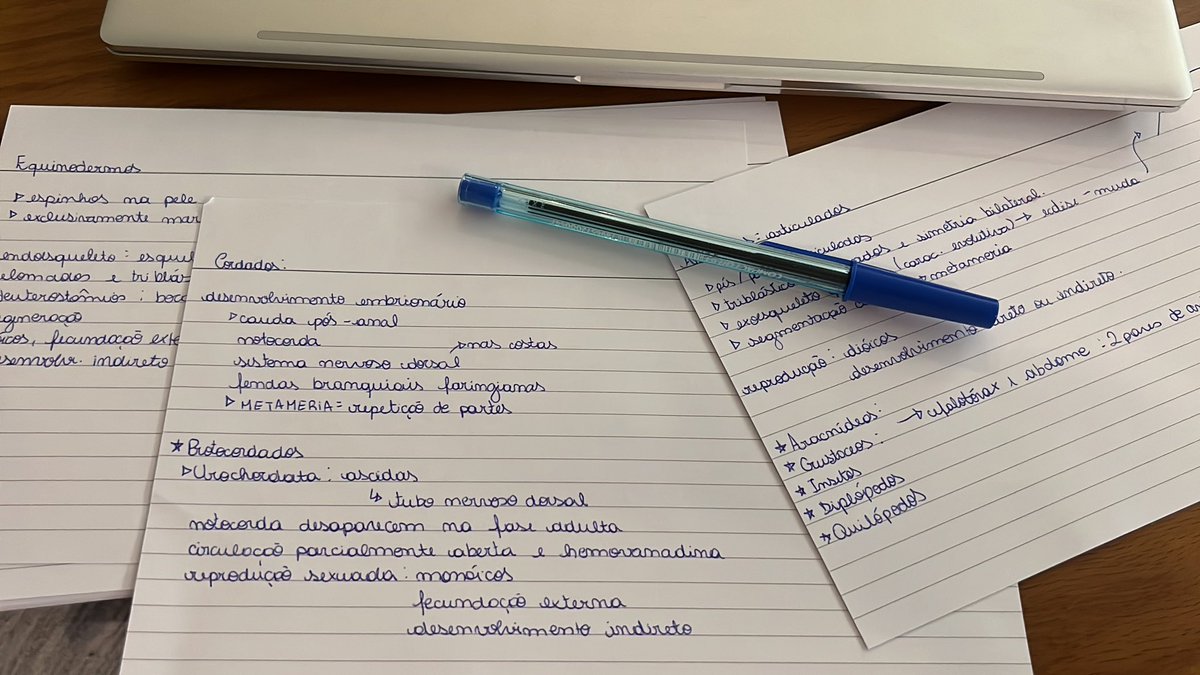 Equinodermos
▹espinhos na pele
▹exclusivamente mar
endosqueleto: esquel
elomados e triblás
deuterostômios: boca
egeneração
icos, fecundação exte
esenvolv. indireto
Cordados:
desenvolvimento embrionário
▹cauda pós-anal
notocorda
↳nas costas
sistema nervoso dorsal
fendas branquiais faringianas
▹METAMERIA = repetição de partes
★Protocordados
▹Urochordata: ascidas
↳ tubo nervoso dorsal
notocorda desaparecem na fase adulta
circulação parcialmente aberta e hemovanadina
reprodução sexuada: monóicos
fecundação externa
desenvolvimento indireto
articulados
▹pés
▹triblástico
e simetria bilateral.
▹exoesqueleto
(carac. evolutiva) → ecdise - muda
▹segmentação
metameria
reprodução: dióicos
desenvolvimento direto ou indireto.
★Aracnídeos:
→ cefalotórax e abdome: 2 pares de an
★Crustaceos:
★Insetos
★Diplópodos
★Quilópodos